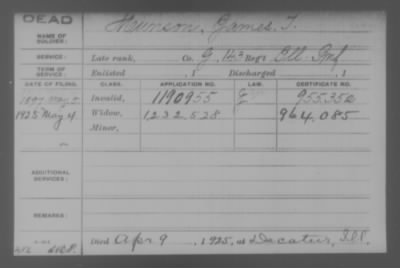 DEAD
NAME OF SOLDIER: James T.
SERVICE: Late rank, Co. G, 143 Reg't Ill. Inf
TERM OF SERVICE: Enlisted , 1 Discharged , 1
DATE OF FILING. CLASS. APPLICATION NO. LAW. CERTIFICATE NO.
1897 May Invalid, 1190955 955.352
1925 May 4 Widow, 1232528 964.085
Minor,
ADDITIONAL SERVICES:
REMARKS:
Died Apr 9, 1925, at Decatur, Ill.